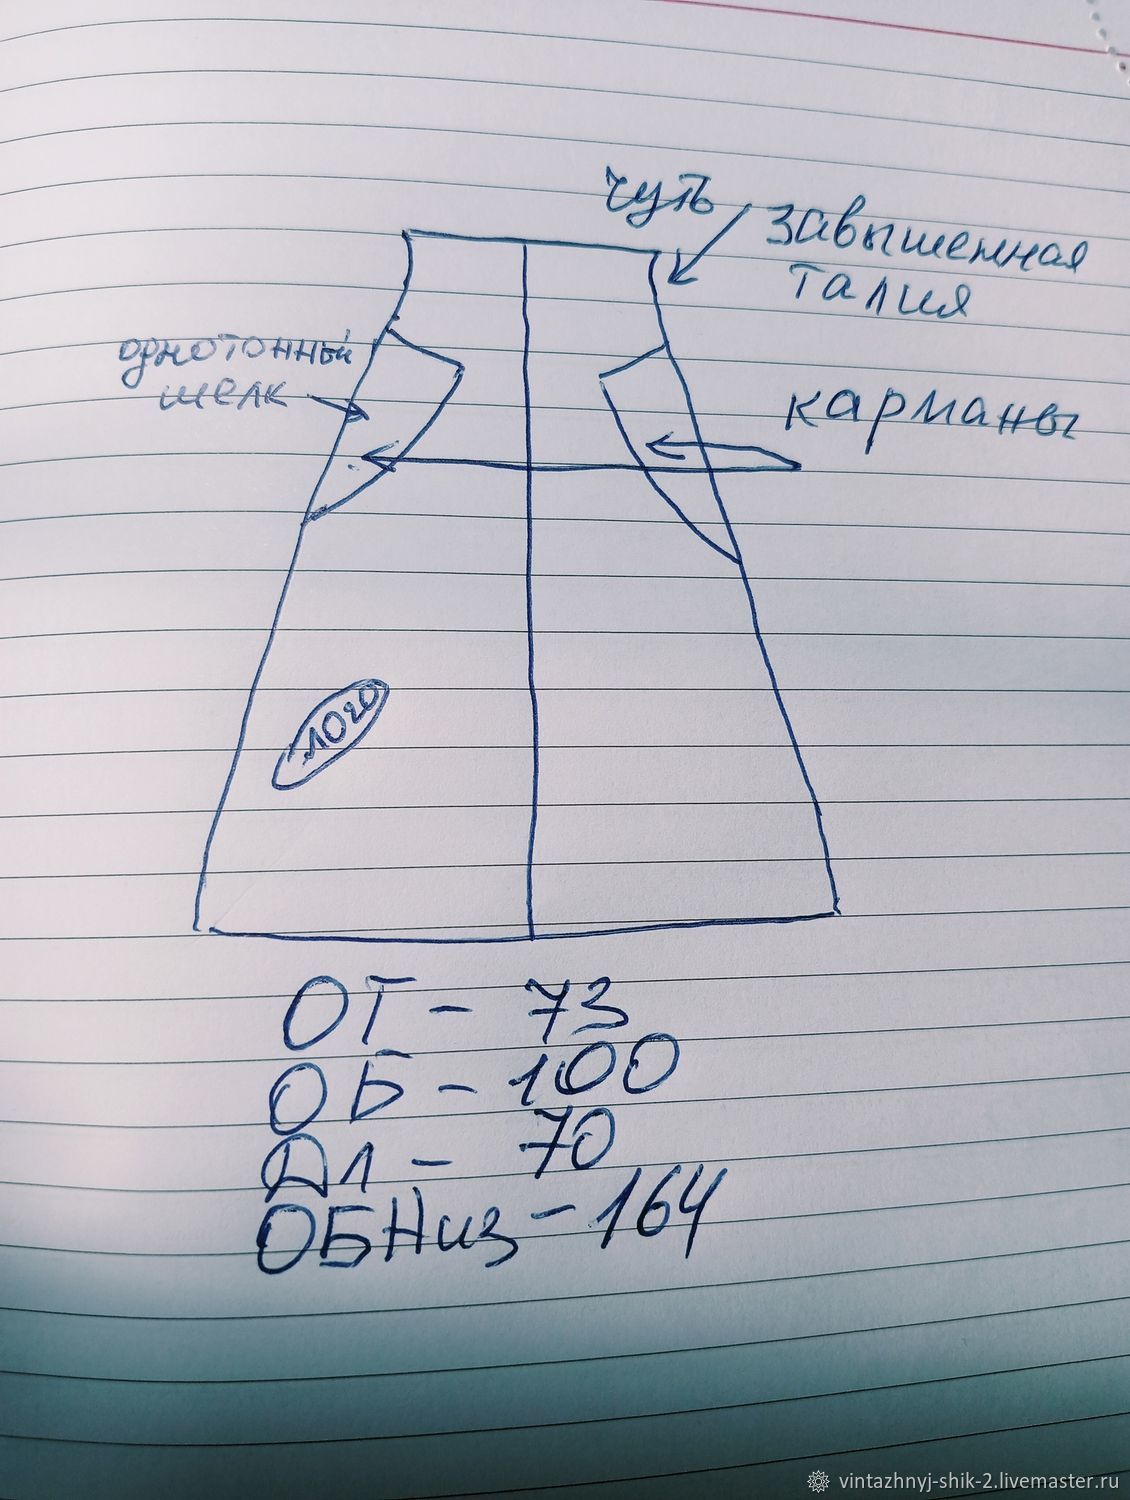 чуть
завышенная
талия
однотонный
шелк
карманы
лого
ОТ - 73
ОБ - 100
Дл - 70
ОБНиз - 164
vintazhnyj-shik-2.livemaster.ru